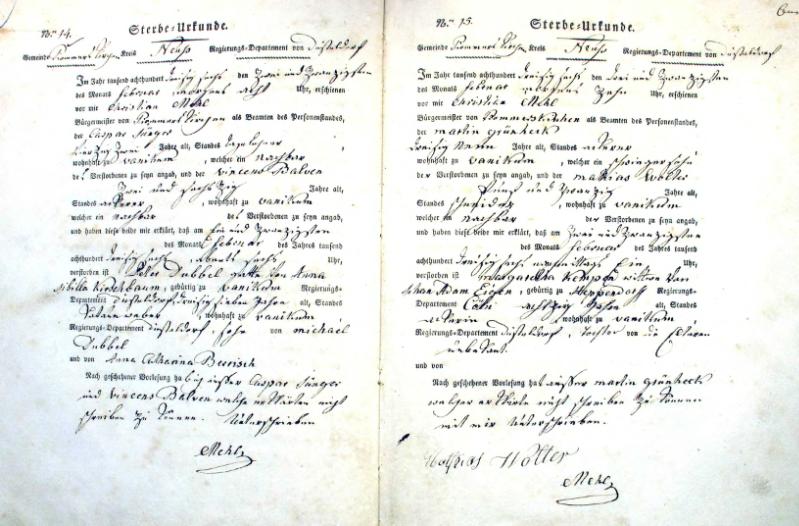 No. 14.
Sterbe-Urkunde.
Gemeinde Rommerskirchen Kreis Neuss Regierungs-Departement von Düsseldorf
Im Jahr tausend achthundert dreißig sechs den zwei und zwanzigsten
des Monats Februar morgens acht Uhr, erschienen
vor mir Christian Mehl
Bürgermeister von Rommerskirchen als Beamten des Personenstandes,
der Caspar
vierzig zwei Jahre alt, Standes Tagelöhner
wohnhaft zu Vanikum, welcher ein Nachbar
des Verstorbenen zu seyn angab, und der Vincens Balven
zwei und sechszig Jahre alt,
Standes Ackerer, wohnhaft zu Vanikum
welcher ein Nachbar des Verstorbenen zu seyn angab,
und haben diese beide mir erklärt, daß am ein und zwanzigsten
des Monats Februar des Jahres tausend
achthundert dreißig sechs Abends sechs Uhr,
verstorben ist Peter Dubbel Gatte von Anna
Sibilla Kirschbaum, gebürtig zu Vanikum Regierungs-
Departement Düsseldorf, dreißig sieben Jahre alt, Standes
, wohnhaft zu Vanikum
Regierungs-Departement Düsseldorf, Sohn von Michael
Dubbel
und von Anna Catharina
Nach geschehener Vorlesung ha Caspar
und Vincens Balven welche erklärten nicht
schreiben zu können. Unterschrieben
Mehl
No. 15.
Sterbe-Urkunde.
Gemeinde Rommerskirchen Kreis Neuss Regierungs-Departement von Düsseldorf
Im Jahr tausend achthundert dreißig sechs den drei und zwanzigsten
des Monats Februar morgens zehn Uhr, erschienen
vor mir Christian Mehl
Bürgermeister von Rommerskirchen als Beamten des Personenstandes,
der Martin Grünheck
dreißig neun Jahre alt, Standes Ackerer
wohnhaft zu Vanikum, welcher ein Schwiegersohn
der Verstorbenen zu seyn angab, und der Mathias Wolter
fünf und zwanzig Jahre alt,
Standes Schneider, wohnhaft zu Vanikum
welcher ein Nachbar der Verstorbenen zu seyn angab,
und haben diese beide mir erklärt, daß am zwei und zwanzigsten
des Monats Februar des Jahres tausend
achthundert dreißig sechs nachmittags ein Uhr,
verstorben ist Margaretha Wittwe von
Johan Adam, gebürtig zu Regierungs-
Departement Cöln, achtzig Jahre alt, Standes
Ackerin, wohnhaft zu Vanikum
Regierungs-Departement Düsseldorf, Tochter von die Elteren
unbekant.
und von
Nach geschehener Vorlesung hat ausser Martin Grünheck
welcher erklärte nicht schreiben zu können
mit mir Unterschrieben.
Mathias Wolter
Mehl